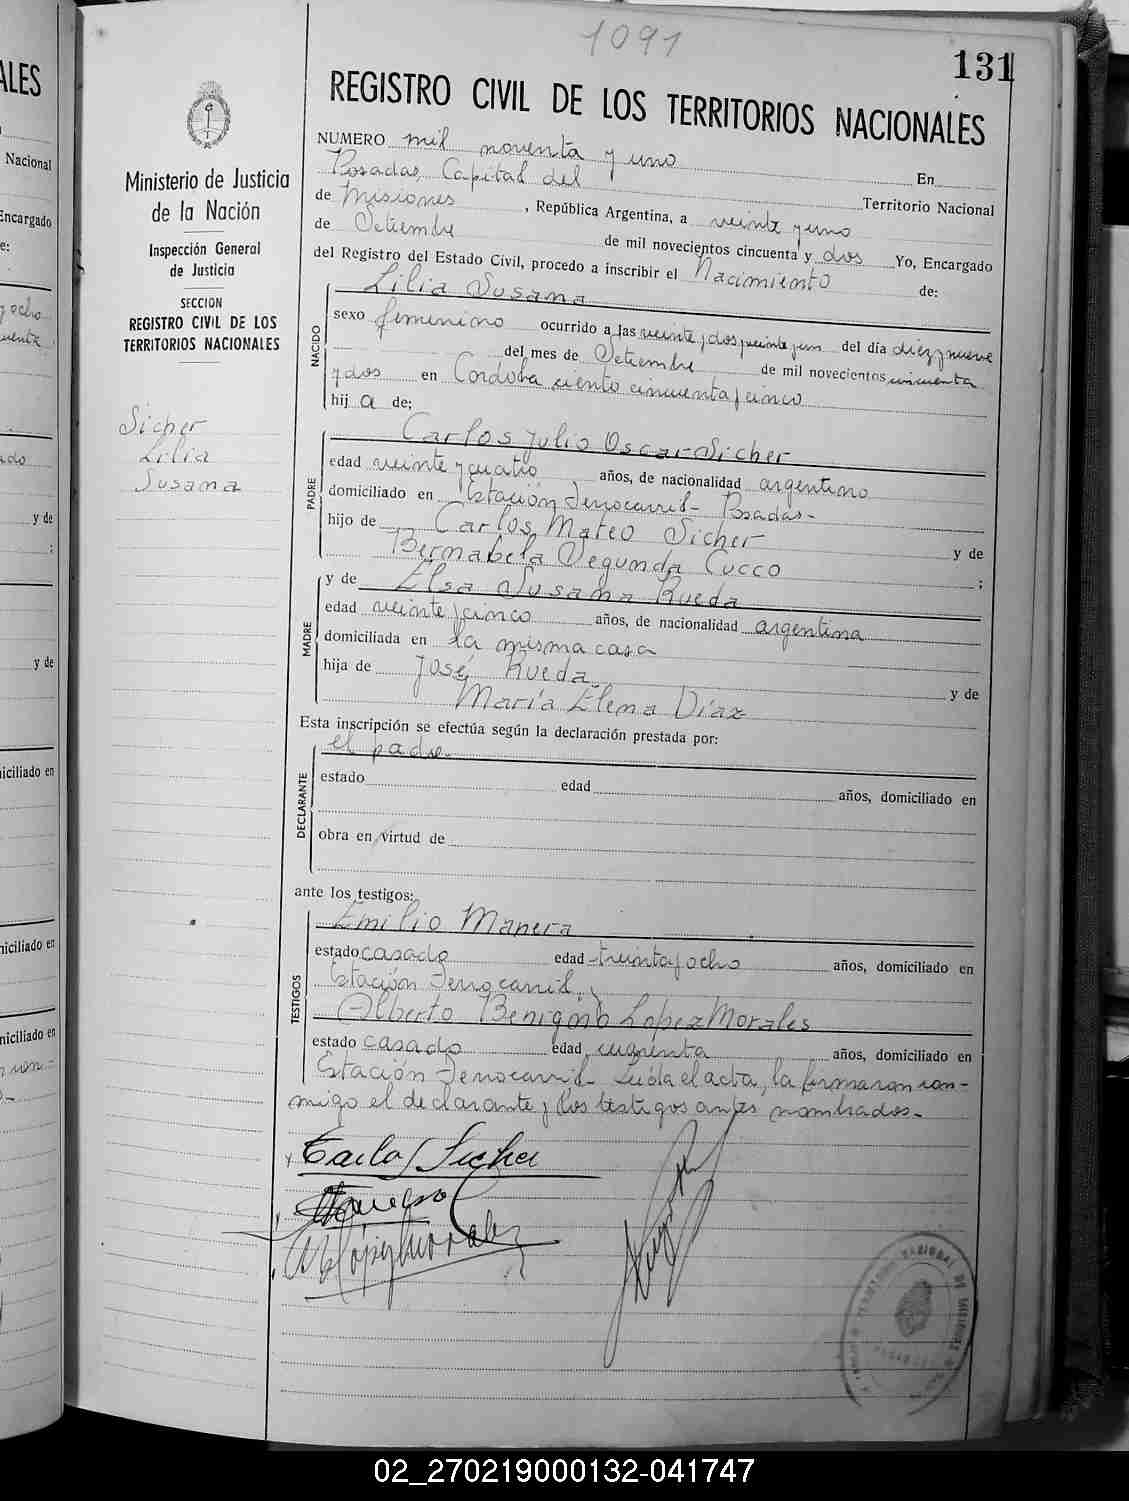 1091
131
REGISTRO CIVIL DE LOS TERRITORIOS NACIONALES
Ministerio de Justicia
de la Nación
Inspección General
de Justicia
SECCION
REGISTRO CIVIL DE LOS
TERRITORIOS NACIONALES
Sicher
Lilia
Susana
NUMERO mil noventa y uno En
Posadas, Capital del Territorio Nacional
de Misiones, República Argentina, a veinte y uno
de Setiembre de mil novecientos cincuenta y dos Yo, Encargado
del Registro del Estado Civil, procedo a inscribir el Nacimiento de:
NACIDO
Lilia Susana
sexo femenino ocurrido a las veinte y dos y veinte y un del día diez y nueve
del mes de Setiembre de mil novecientos cincuenta
y dos en Cordoba ciento cincuenta y cinco
hij a de:
PADRE
Carlos Julio Oscar Sicher
edad veinte y cuatro años, de nacionalidad argentino
domiciliado en Estación Ferrocarril - Posadas -
hijo de Carlos Mateo Sicher y de
Bernabela Segunda Cucco ;
MADRE
y de Elsa Susana Rueda
edad veinte y cinco años, de nacionalidad argentina
domiciliada en la misma casa
hija de José Rueda y de
María Elena Díaz
Esta inscripción se efectúa según la declaración prestada por:
DECLARANTE
el padre.
estado edad años, domiciliado en
obra en virtud de
ante los testigos:
TESTIGOS
Emilio Manera
estado casado edad treinta y ocho años, domiciliado en
Estación Ferrocarril
Alberto Benigno Lopez Morales
estado casado edad cuarenta años, domiciliado en
Estación Ferrocarril - Leída el acta, la firmaron con-
migo el declarante y los testigos antes nombrados.-
Carlos Sicher
ALES
Nacional
Encargado
e:
y ocho
y de
;
y de
iciliado en
niciliado en
niciliado en
02_270219000132-041747